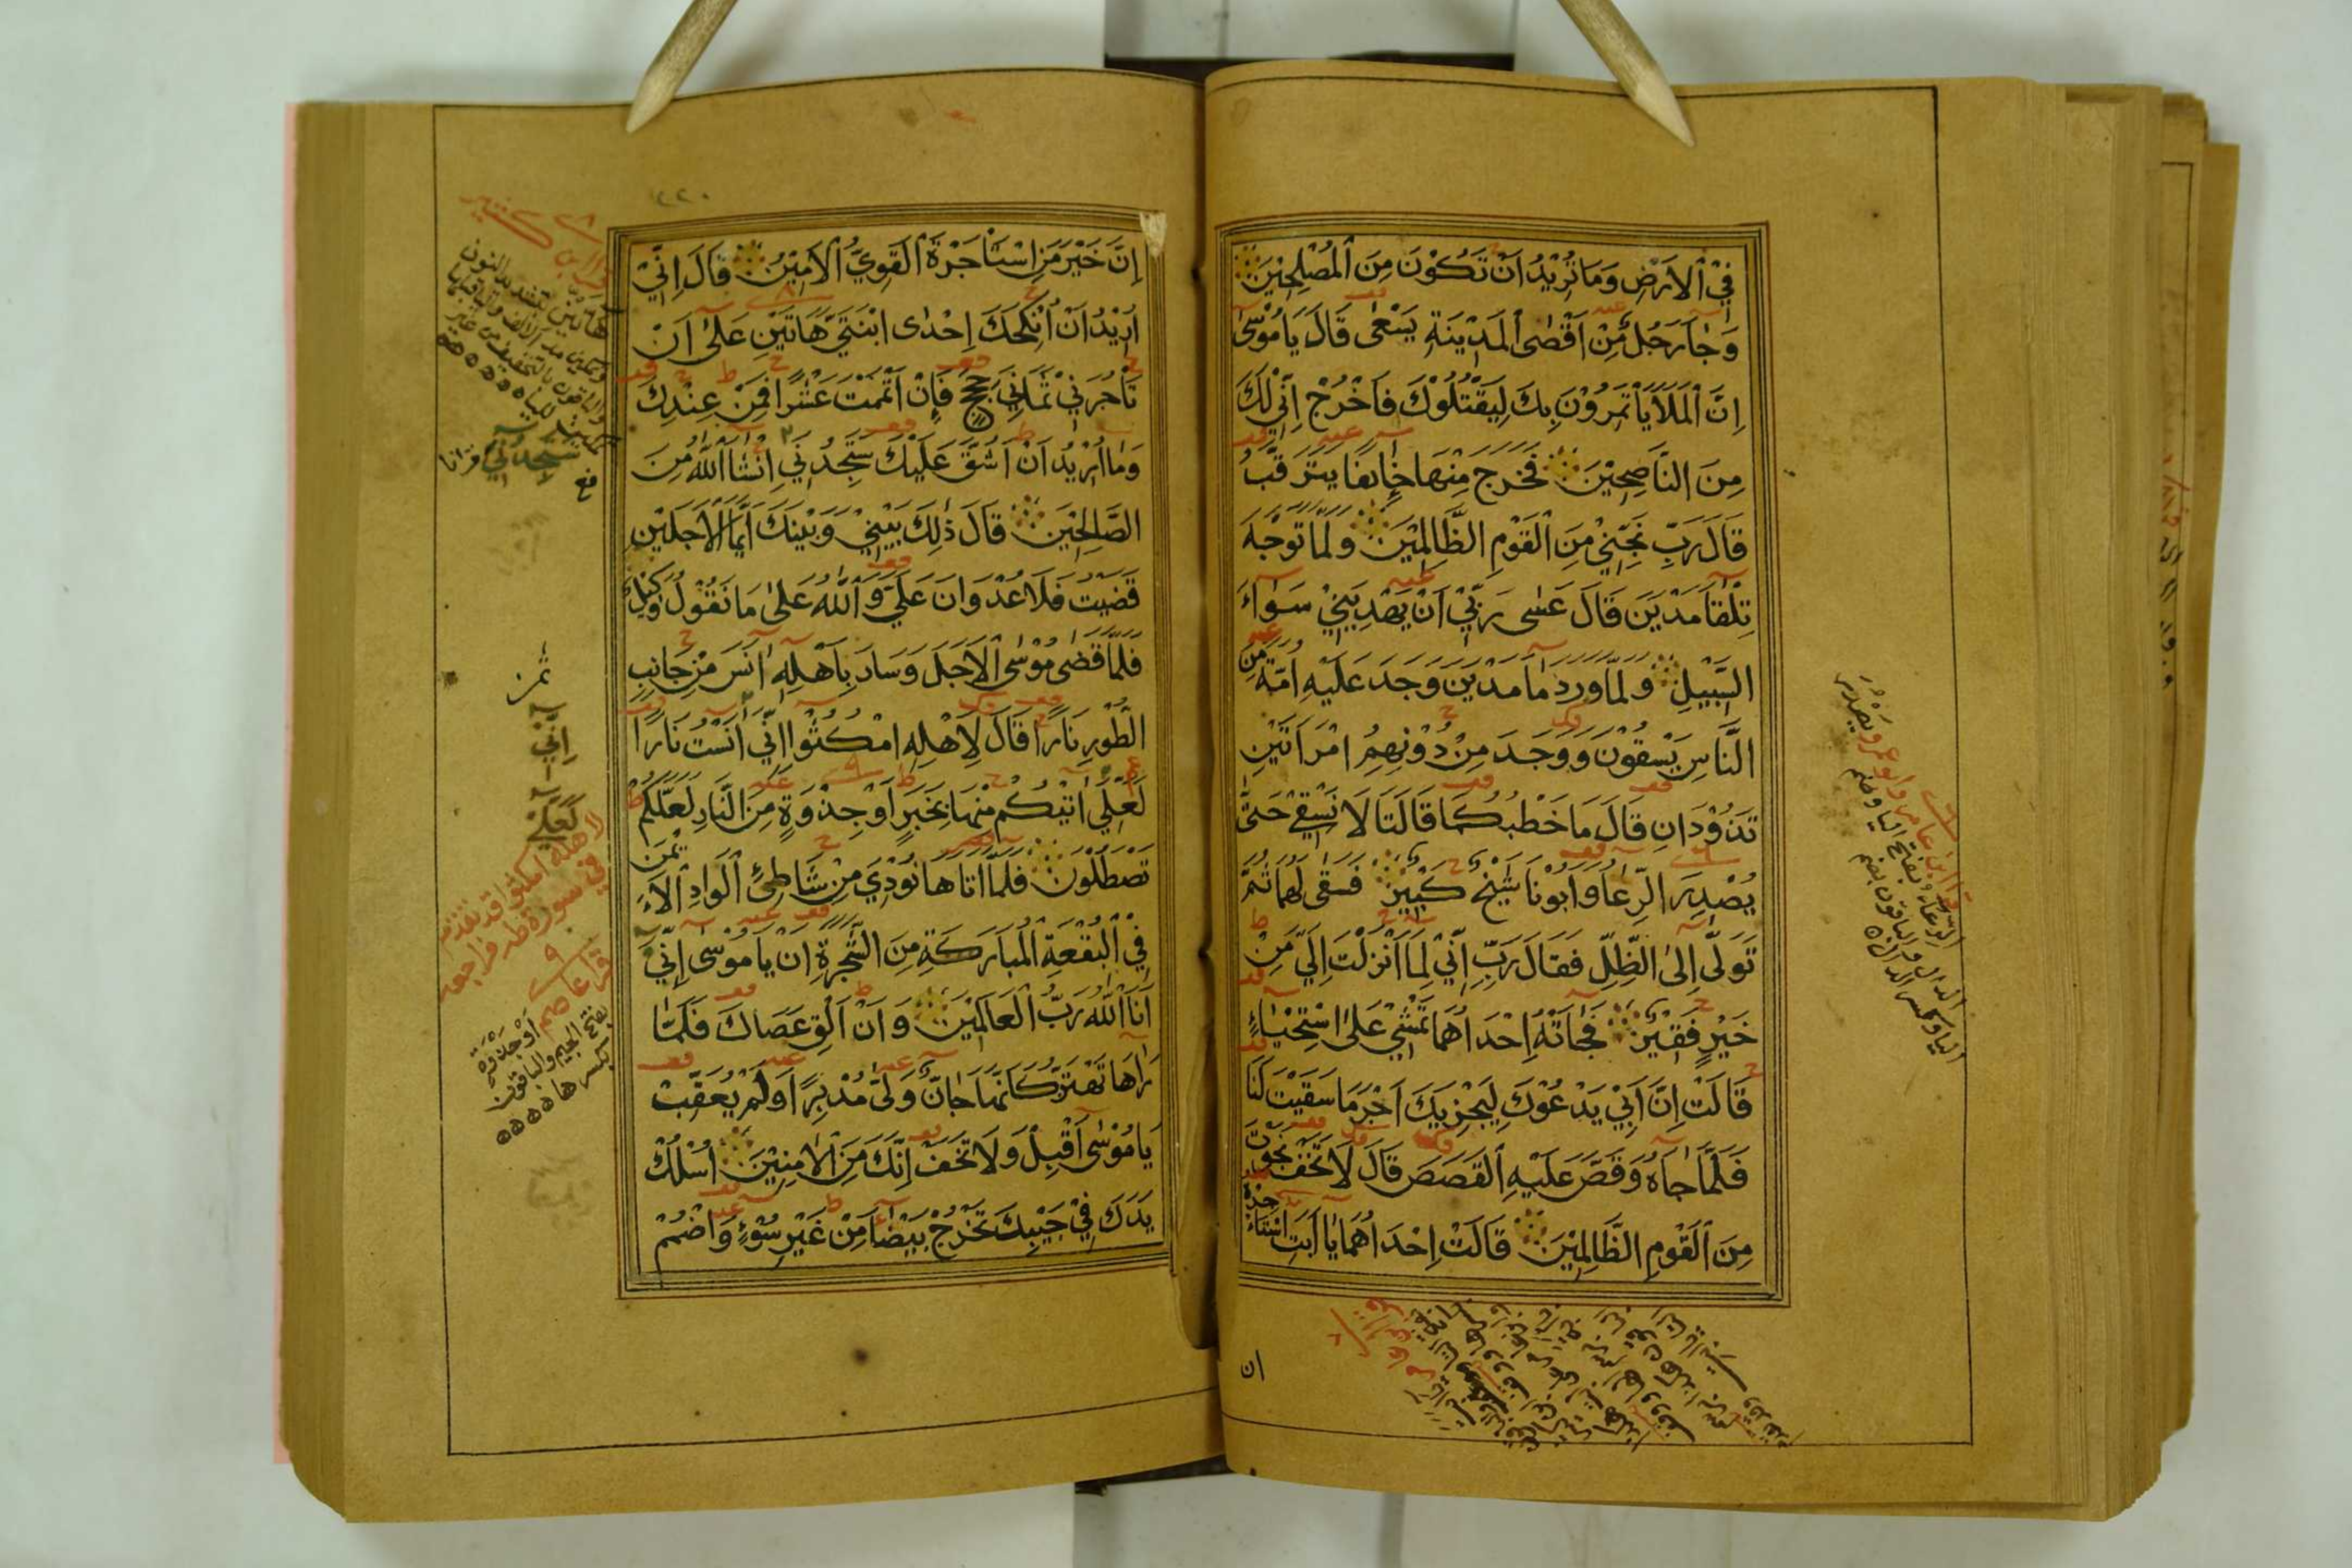 فِيْ الْاَرْضِ وَمَا تُرِيْدُ اَنْ تَكُوْنَ مِنَ الْمُصْلِحِيْنَ
وَجَاَ رَجُلٌ مِّنْ اَقْصَى الْمَدِيْنَةِ يَسْعٰى قَالَ يَا مُوْسٰى
اِنَّ الْمَلَاَ يَاْتَمِرُوْنَ بِكَ لِيَقْتُلُوْكَ فَاخْرُجْ اِنِّيْ لَكَ
مِنَ النَّاصِحِيْنَ فَخَرَجَ مِنْهَا خَاِئفًا يَتَرَقَّبُ
قَالَ رَبِّ نَجِّنِيْ مِنَ الْقَوْمِ الظَّالِمِيْنَ وَلَمَّا تَوَجَّهَ
تِلْقَاَ مَدْيَنَ قَالَ عَسٰى رَبِّيْ اَنْ يَهْدِيَنِيْ سَوَاءَ
السَّبِيْلِ وَلَمَّا وَرَدَ مَاَ مَدْيَنَ وَجَدَ عَلَيْهِ اُمَّةً مِّنَ
النَّاسِ يَسْقُوْنَ وَوَجَدَ مِنْ دُوْنِهِمُ امْرَاَتَيْنِ
تَذُوْدَانِ قَالَ مَا خَطْبُكُمَا قَالَتَا لَا نَسْقِيْ حَتّٰى
يُصْدِرَ الرِّعَاُ وَاَبُوْنَا شَيْخٌ كَبِيْرٌ فَسَقٰى لَهُمَا ثُمَّ
تَوَلّٰى اِلَى الظِّلِّ فَقَالَ رَبِّ اِنِّيْ لِمَا اَنْزَلْتَ اِلَيَّ مِنْ
خَيْرٍ فَقِيْرٌ فَجَاَتْهُ اِحْدَاهُمَا تَمْشِيْ عَلَى اسْتِحْيَاءٍ
قَالَتْ اِنَّ اَبِيْ يَدْعُوْكَ لِيَجْزِيَكَ اَجْرَ مَا سَقَيْتَ لَنَا
فَلَمَّا جَاَهُ وَقَصَّ عَلَيْهِ الْقَصَصَ قَالَ لَا تَخَفْ نَجَوْتَ
مِنَ الْقَوْمِ الظَّالِمِيْنَ قَالَتْ اِحْدَاهُمَا يَا اَبَتِ اسْتَاْجِرْهُ
ان
اِنَّ خَيْرَ مَنِ اسْتَاْجَرْتَ الْقَوِيُّ الْاَمِيْنُ قَالَ اِنِّيْ
اُرِيْدُ اَنْ اُنْكِحَكَ اِحْدَى ابْنَتَيَّ هَاتَيْنِ عَلٰى اَنْ
تَاْجُرَنِيْ ثَمَانِيَ حِجَجٍ فَاِنْ اَتْمَمْتَ عَشْرًا فَمِنْ عِنْدِكَ
وَمَا اُرِيْدُ اَنْ اَشُقَّ عَلَيْكَ سَتَجِدُنِي اِنْشَاَ اللّٰهُ مِنَ
الصَّالِحِيْنَ قَالَ ذٰلِكَ بَيْنِيْ وَبَيْنَكَ اَيَّمَا الْاَجَلَيْنِ
قَضَيْتُ فَلَا عُدْوَانَ عَلَيَّ وَاللّٰهُ عَلٰى مَا نَقُوْلُ وَكِيْلٌ
فَلَمَّا قَضٰى مُوْسَى الْاَجَلَ وَسَارَ بِاَهْلِهٖ اٰنَسَ مِنْ جَانِبِ
الطُّوْرِ نَارًا قَالَ لِاَهْلِهِ امْكُثُوْا اِنِّي اٰنَسْتُ نَارًا
لَعَلِّي اٰتِيْكُمْ مِنْهَا بِخَبَرٍ اَوْ جِذْوَةٍ مِنَ النَّارِ لَعَلَّكُمْ
تَصْطَلُوْنَ فَلَمَّا اَتَاهَا نُوْدِيَ مِنْ شَاطِئِ الْوَادِ الْاَيْمَنِ
فِي الْبُقْعَةِ الْمُبَارَكَةِ مِنَ الشَّجَرَةِ اَنْ يَا مُوْسٰى اِنِّيَ
اَنَا اللّٰهُ رَبُّ الْعَالَمِيْنَ وَاَنْ اَلْقِ عَصَاكَ فَلَمَّا
رَاٰهَا تَهْتَزُّ كَاَنَّهَا جَانٌّ وَلّٰى مُدْبِرًا وَلَمْ يُعَقِّبْ
يَا مُوْسٰى اَقْبِلْ وَلَا تَخَفْ اِنَّكَ مِنَ الْاٰمِنِيْنَ اُسْلُكْ
يَدَكَ فِيْ جَيْبِكَ تَخْرُجْ بَيْضَاَ مِنْ غَيْرِ سُوْءٍ وَاضْمُمْ
سَتَجِدُنِي
ثمن
اِنِّي
لَعَلِّي
لاهله امكثوا قد تقدم
في سورة طه فراجعه
قرا عاصم اَوْ جَذْوَةٍ
بفتح الجيم والباقون
بكسرها